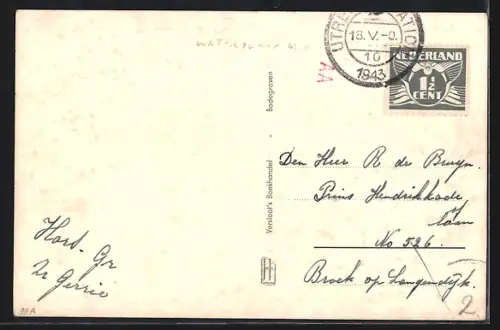 UTRECHT STATION
18.V.-0.
10
1943
NEDERLAND
1½
CENT
AA
Verslaat's Boekhandel - Bodegraven
Den Heer R de Bruyn.
Prins Hendrikkade
laan
No 526.
Broek op Langendijk.
Hart. Gr
2